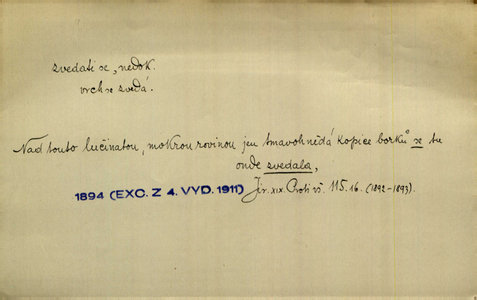 zvedati se, nedok.
vrch se zvedá.
Nad touto lučinatou, mokrou rovinou jen tmavohnědá kopice borků se tu
onde zvedala,
1894 (EXC. Z 4. VYD. 1911) Jir. XIX. Proti vš. 115. 16. (1892-1893).